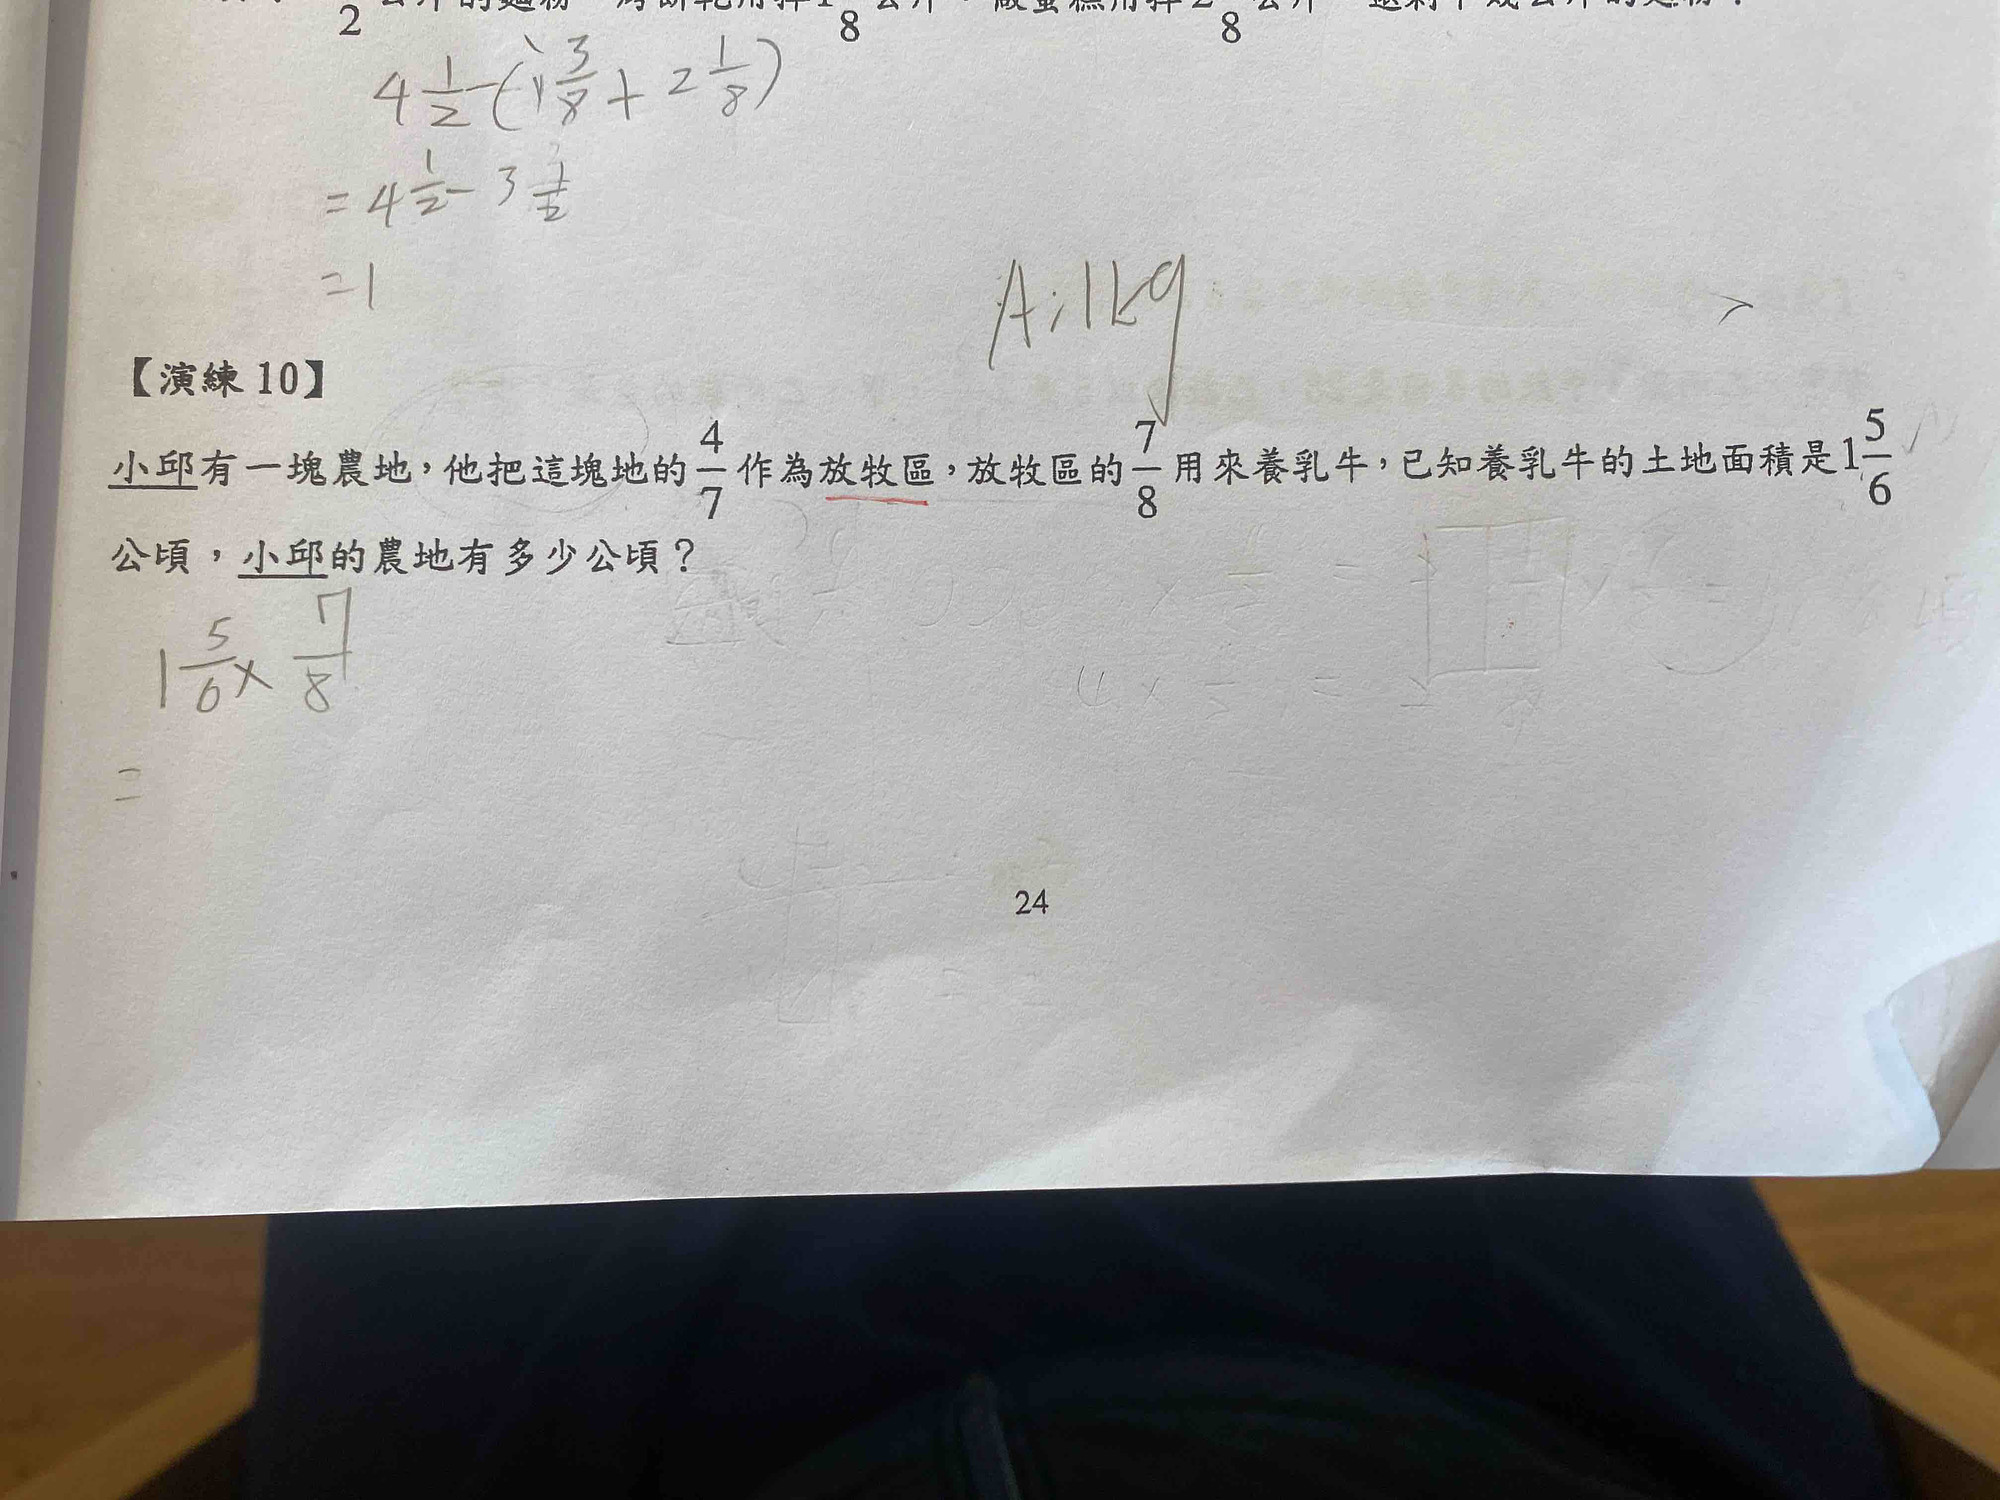 2 8 8
4 1/2 - (1 3/8 + 2 1/8)
= 4 1/2 - 3 1/2
= 1
A:1kg
【演練 10】
小邱有一塊農地，他把這塊地的 4/7 作為放牧區，放牧區的 7/8 用來養乳牛，已知養乳牛的土地面積是 1 5/6
公頃，小邱的農地有多少公頃？
1 5/6 × 7/8
=
24